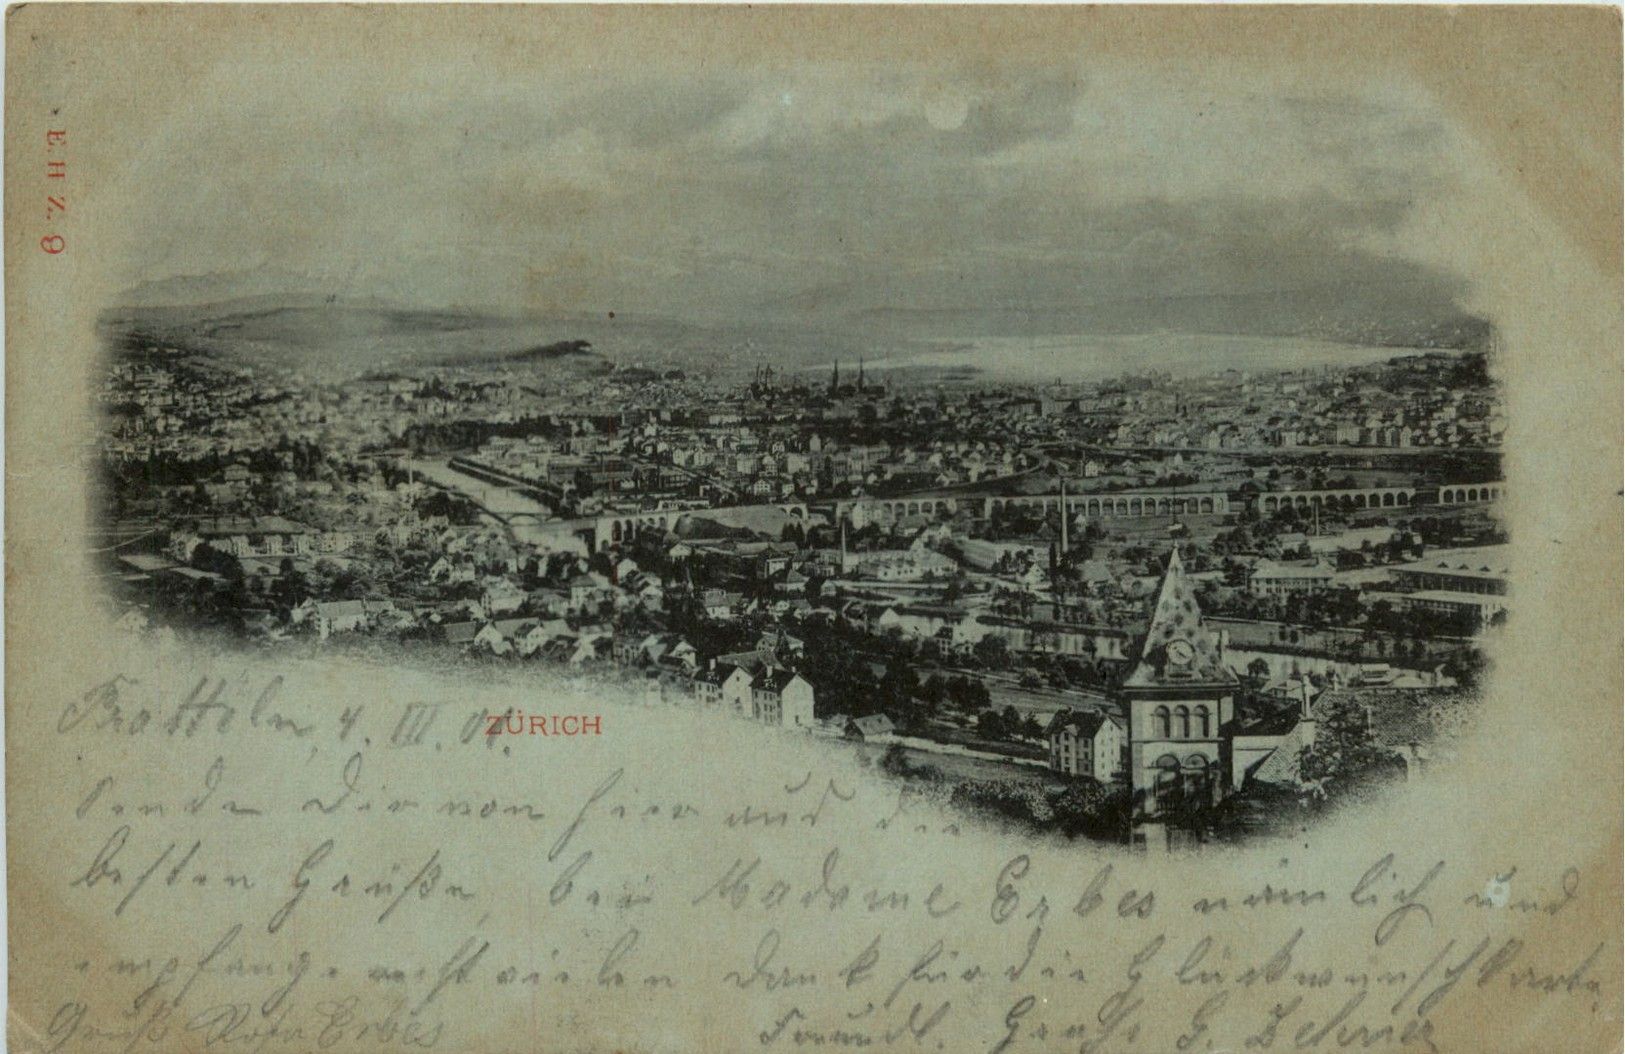 E. H. Z. 9
ZÜRICH
4. III. 01.
Sende Dir von hier aus die
besten Grüße, bei Madame Erbes nämlich und
empfange recht vielen Dank für die Glückwunschkarte.
Freundl. Grüße G.
Gruß Rosa Erbes